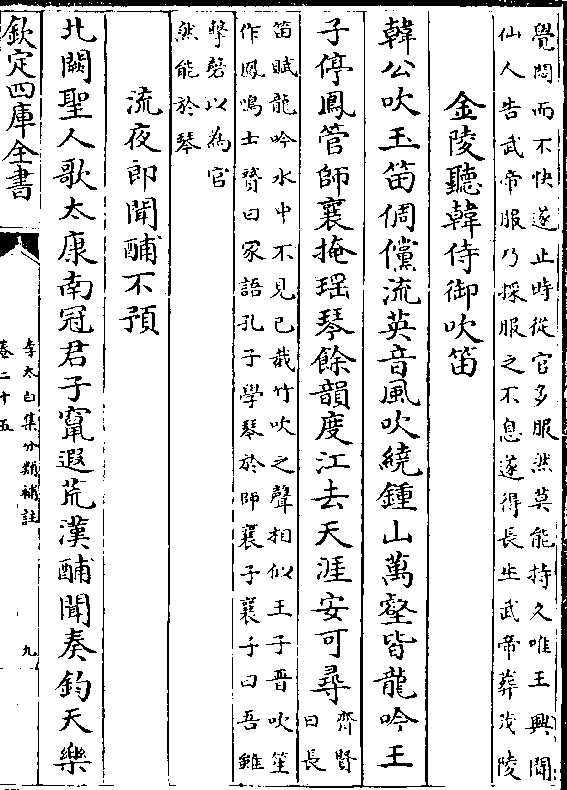 覺悶而不快遂止時從官多服然莫能持久唯王興聞
仙人告武帝服乃採服之不息遂得長生武帝葬茂陵
金陵聽韓侍御吹笛
韓公吹玉笛倜儻流英音風吹繞鍾山萬壑皆龍吟王
子停鳳管師襄掩瑶琴餘韻度江去天涯安可尋
齊賢
曰長
笛賦龍吟水中不見已截竹吹之聲相似王子晋吹笙
作鳳鳴士贇曰家語孔子學琴於師襄子襄子曰吾雖
擊磬以為官
然能於琴
流夜郎聞酺不預
北闕聖人歌太康南冠君子竄遐荒漢酺聞奏鈞天樂
欽定四庫全書
李太白集分類補註
卷二十五
九